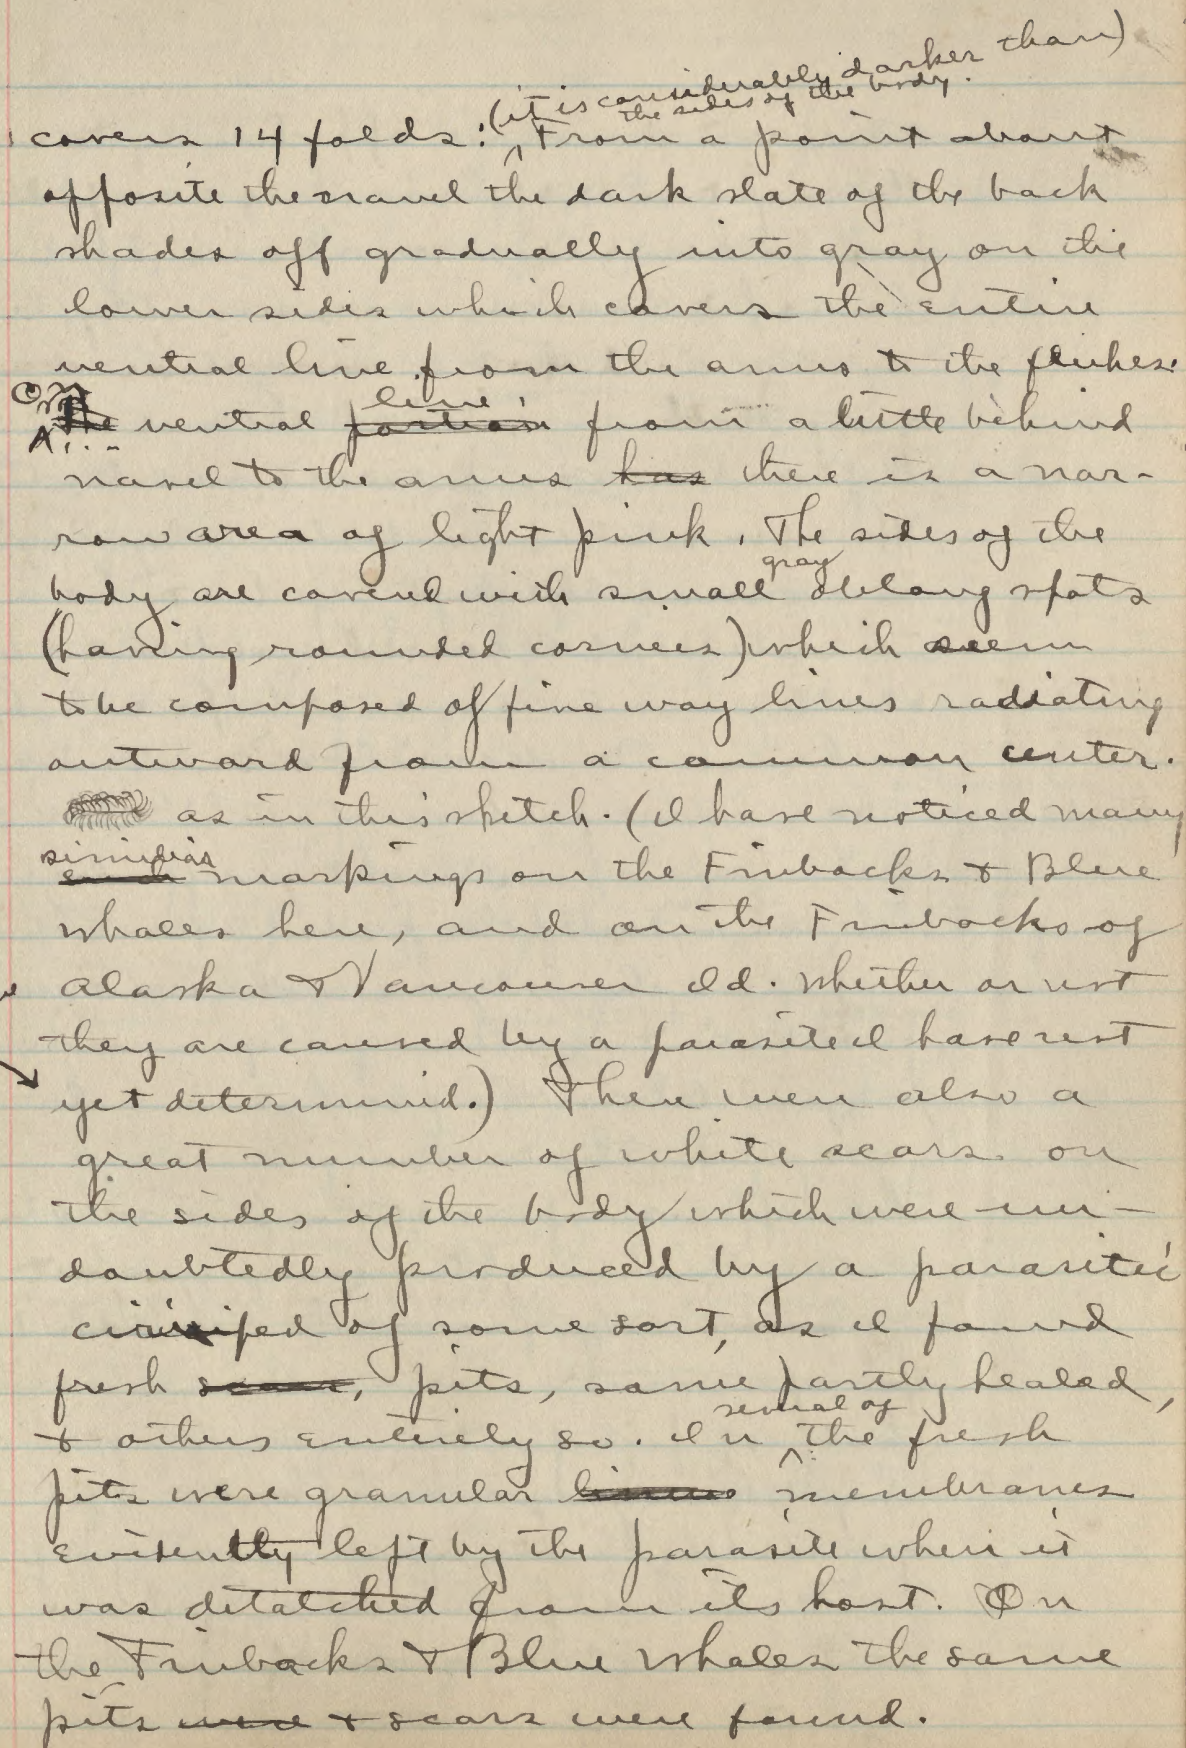 (it is considerably darker than)
the sides of the body.
covers 14 folds. From a point about
opposite the navel the dark slate of the back
shades off gradually into gray on the
lower sides which covers the entire
ventral line from the anus to the flukes.
On
The ventral portion line, from a little behind
navel to the anus has there is a nar-
row area of light pink. The sides of the
body are covered with small gray oblong spots
(having rounded corners) which seem
to be composed of fine wavy lines radiating
outward from a common center.
as in this sketch. (I have noticed many
similar
such markings on the Finbacks & Blue
whales here, and on the Finbacks of
Alaska & Vancouver Id. Whether or not
they are caused by a parasite I have not
yet determind.) There were also a
great number of white scars on
the sides of the body which were un-
doubtedly produced by a parasitic
cirriped of some sort, as I found
fresh scars, pits, some partly healed,
& others entirely so. In several of the fresh
pits were granular membranes
evidently left by the parasite when it
was detatched from its host. On
the Finbacks & Blue whales the same
pits were & scars were found.